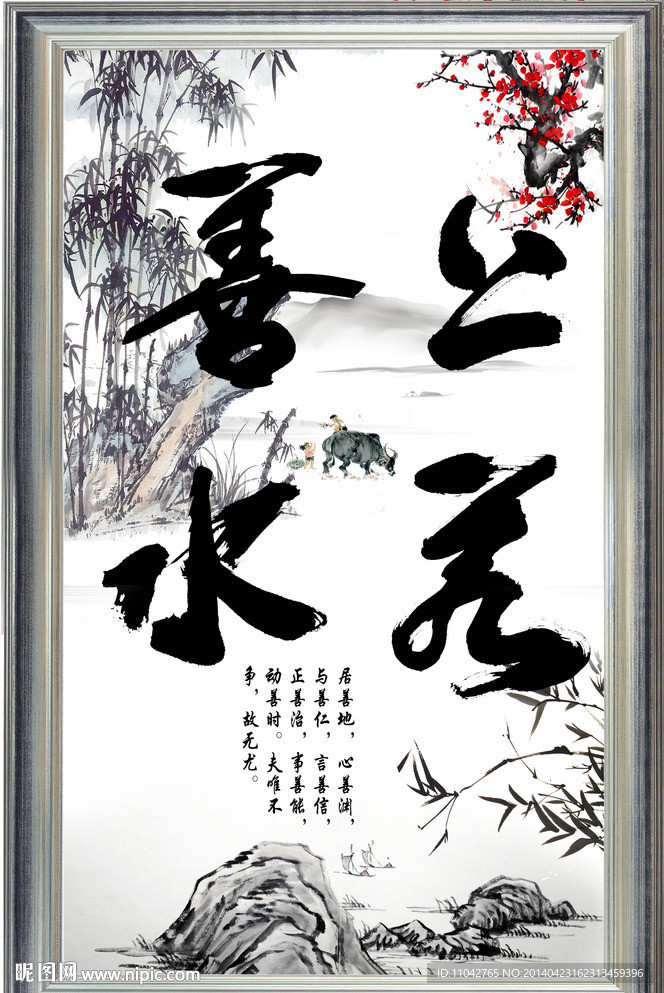 上善
若水
居善地，心善渊，
与善仁，言善信，
正善治，事善能，
动善时。夫唯不
争，故无尤。
昵图网 www.nipic.com
ID:11042765 NO:20140423162313459396